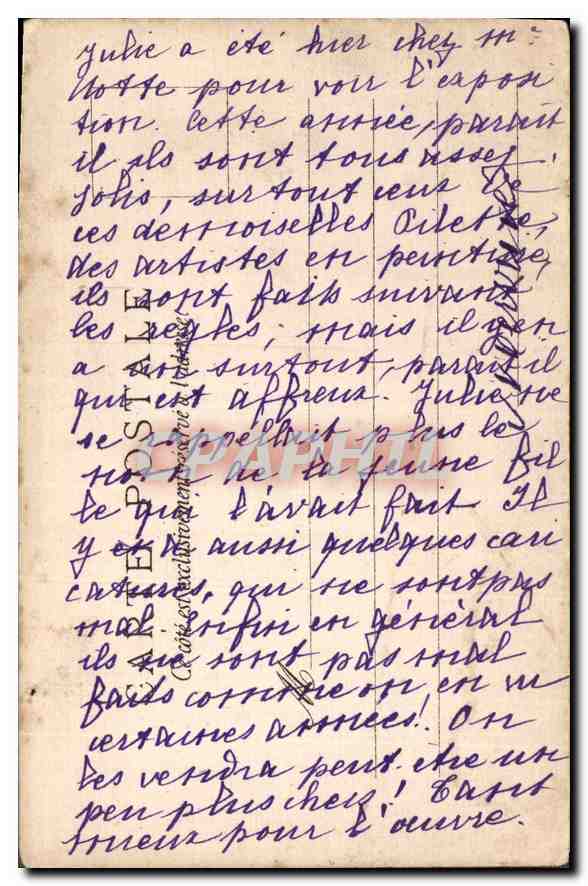 Julie a été hier chez Mr
Notte pour voir l'exposi
tion. Cette année, parait
il ils sont tous assez
jolis, surtout ceux de
ces demoiselles Pilette,
des artistes en peinture,
ils sont faits suivant
les règles, mais il y en
a un surtout, parait il
qui est affreux. Julie ne
se rappellait plus le
nom de la jeune fil
le qui l'avait fait Il
y en a aussi quelques cari
catures, qui ne sont pas
mal Enfin en général
ils ne sont pas mal
faits comme on en vu
certaines années! On
les vendra peut-être un
peu plus cher! Tant
mieux pour l'œuvre.
CARTE POSTALE
Ce côté est exclusivement réservé à l'adresse
M
CPAPHIL